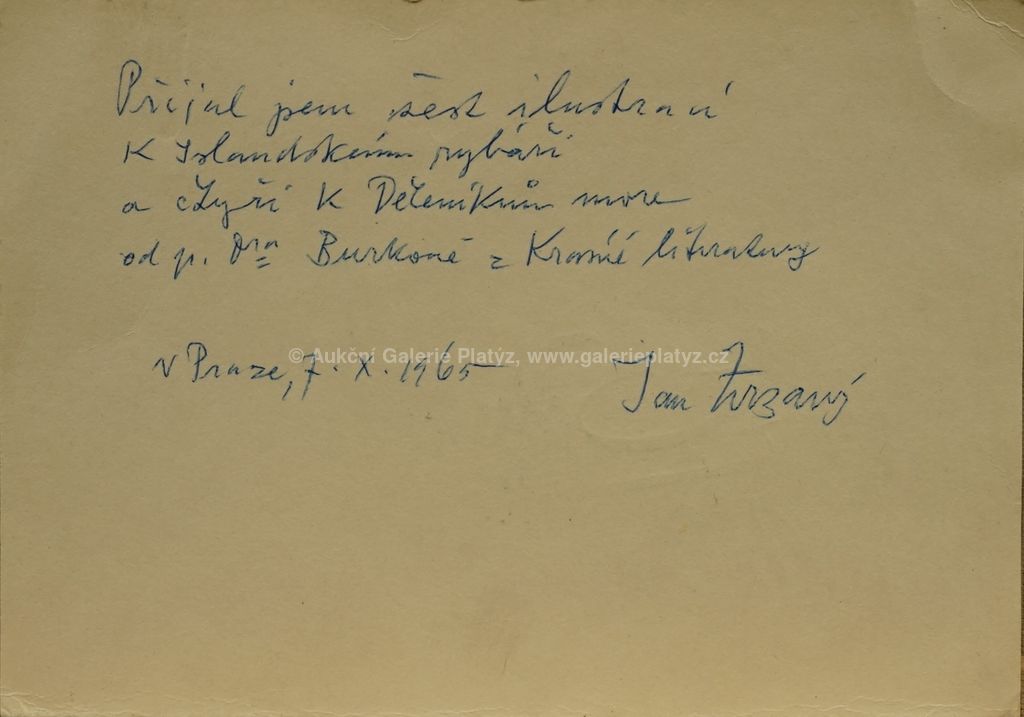 Přijal jsem šest ilustrací
k Islandskému rybáři
a čtyři k Dělníkům moře
od p. Dra Burkoně z Krásné literatury
v Praze, 7. X. 1965
Jan Zrzavý
© Aukční Galerie Platýz, www.galerieplatyz.cz